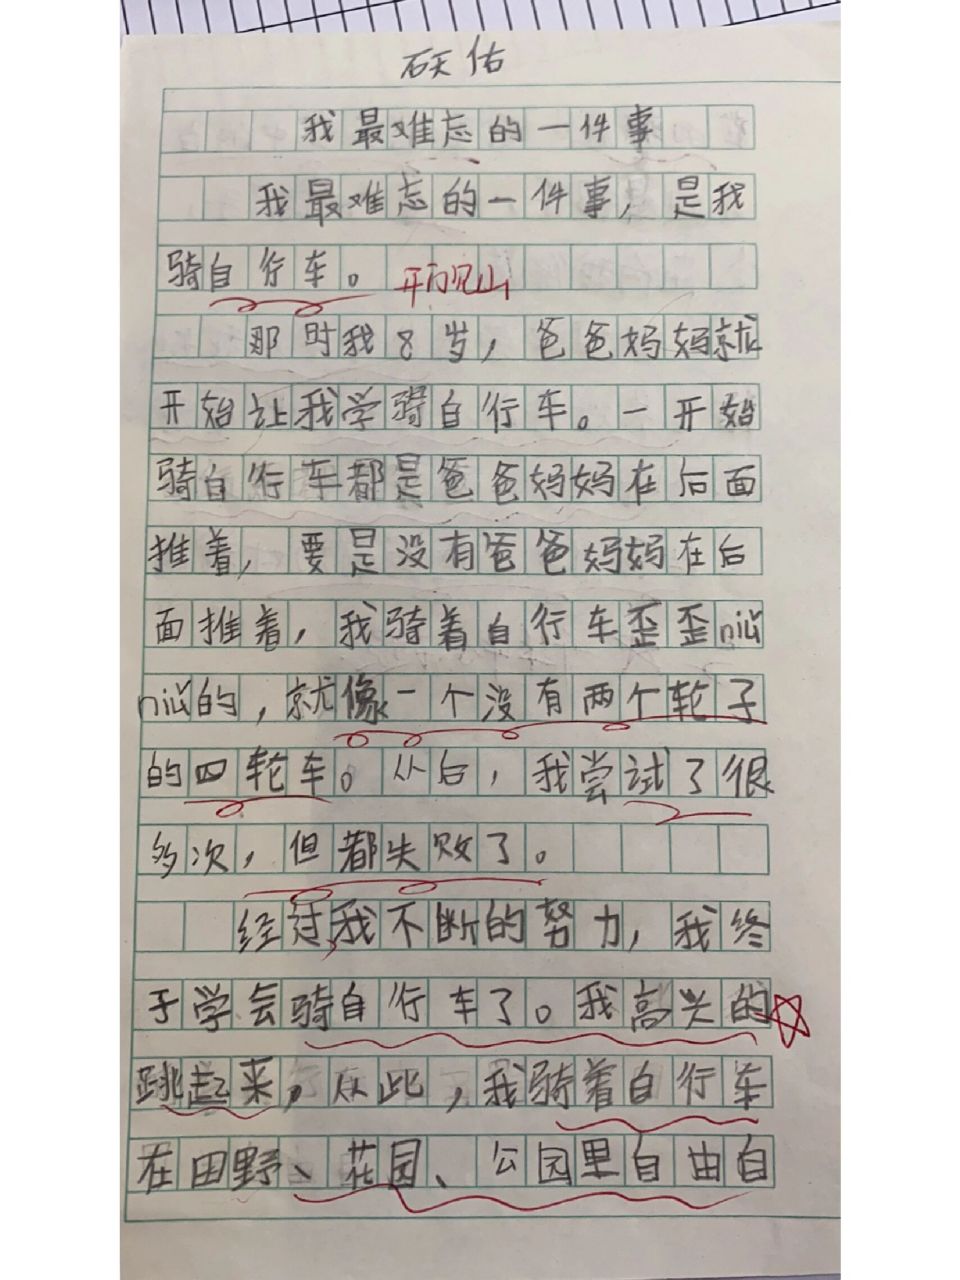 硕佑
我最难忘的一件事
我最难忘的一件事，是我
骑自行车。 开门见山
那时我8岁，爸爸妈妈就
开始让我学骑自行车。一开始
骑自行车都是爸爸妈妈在后面
推着，要是没有爸爸妈妈在后
面推着，我骑着自行车歪歪niǔ
niǔ的，就像一个没有两个轮子
的四轮车。从后，我尝试了很
多次，但都失败了。
经过我不断的努力，我终
于学会骑自行车了。我高兴的
跳起来，从此，我骑着自行车
在田野、花园、公园里自由自